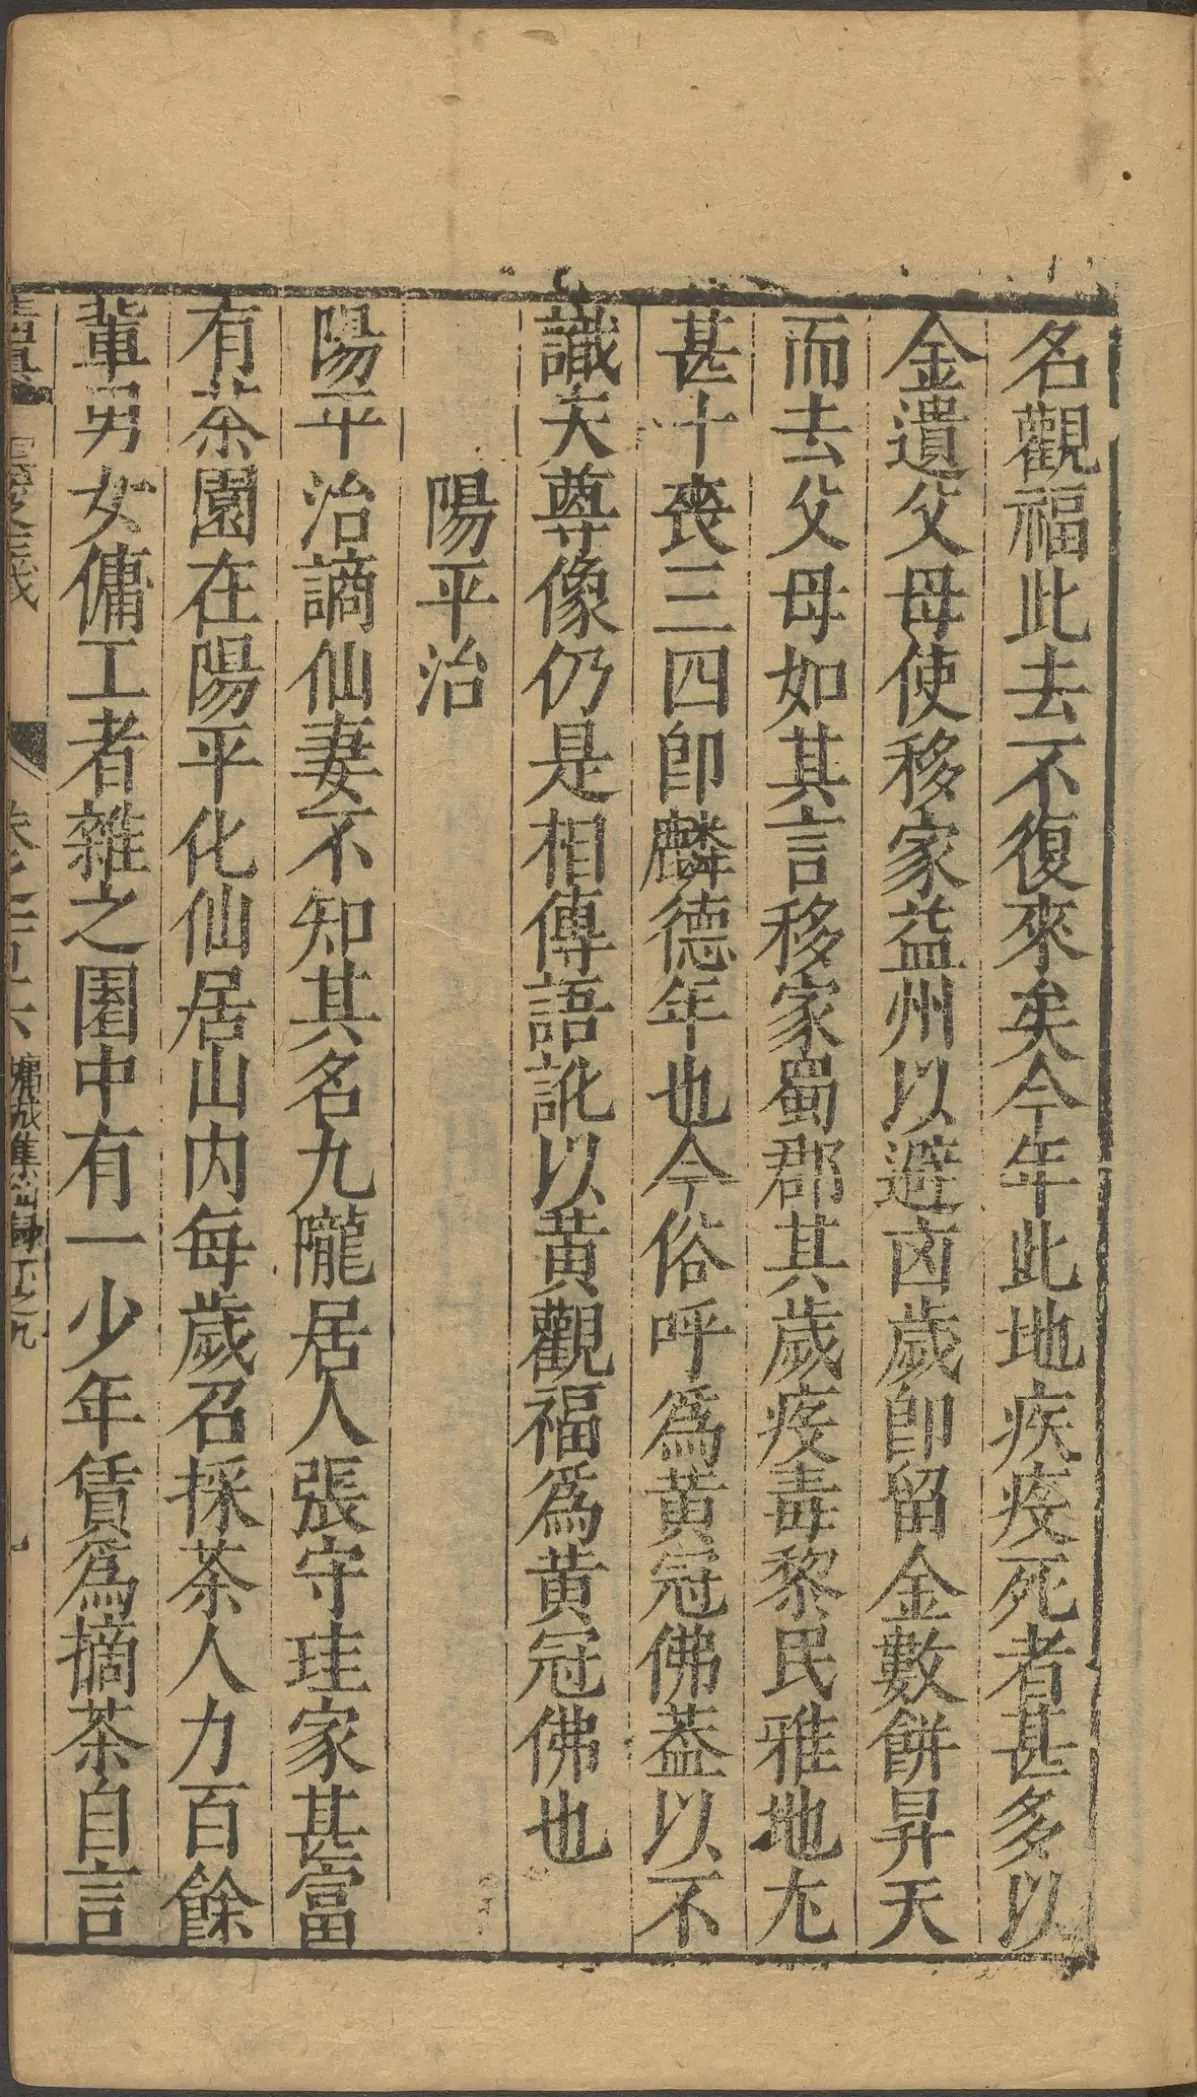 名觀福此去不復來矣今年此地疾疫死者甚多以
金遺父母使移家益州以避凶歲即留金數餅昇天
而去父母如其言移家蜀郡其歲疫毒黎民雅地尤
甚十喪三四即麟德年也今俗呼為黃冠佛葢以不
識夫尊像仍是相傳語訛以黃觀福為黃冠佛也
陽平治
陽平治謫仙妻不知其名九隴居人張守珪家甚富
有茶園在陽平化仙居山内每歲召採茶人力百餘
輩男女傭工者雜之園中有一少年賃為摘茶自言